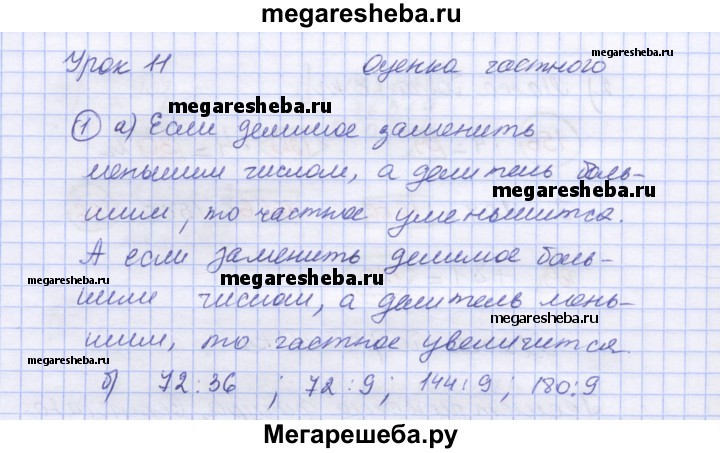 megaresheba.ru
Урок 11 Оценка частного
megaresheba.ru
megaresheba.ru
① а) Если делимое заменить
меньшим числом, а делитель боль-
megaresheba.ru
шим, то частное уменьшится.
А если заменить делимое боль-
megaresheba.ru
megaresheba.ru
шим числом, а делитель мень-
megaresheba.ru
шим, то частное увеличится.
megaresheba.ru
б) 72:36 ; 72:9 ; 144:9 ; 180:9
Мегарешеба.ру